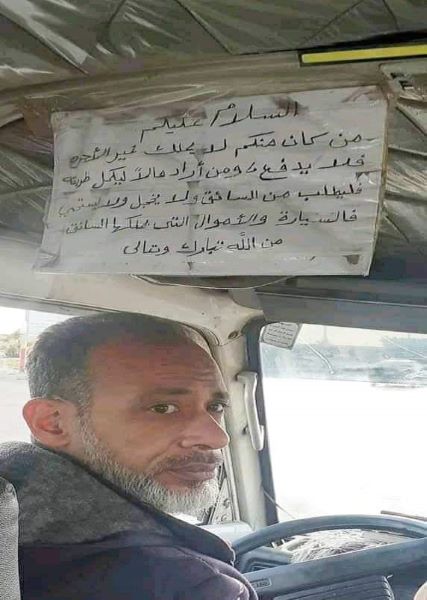 السلام عليكم
من كان منكم لا يملك غير الأجرة
فلا يدفع ومن أراد مالاً ليكمل طريقه
فليطلب من السائق ولا يخجل ولا يستحي
فالسيارة والأموال التي يملكها السائق
من الله تبارك وتعالى